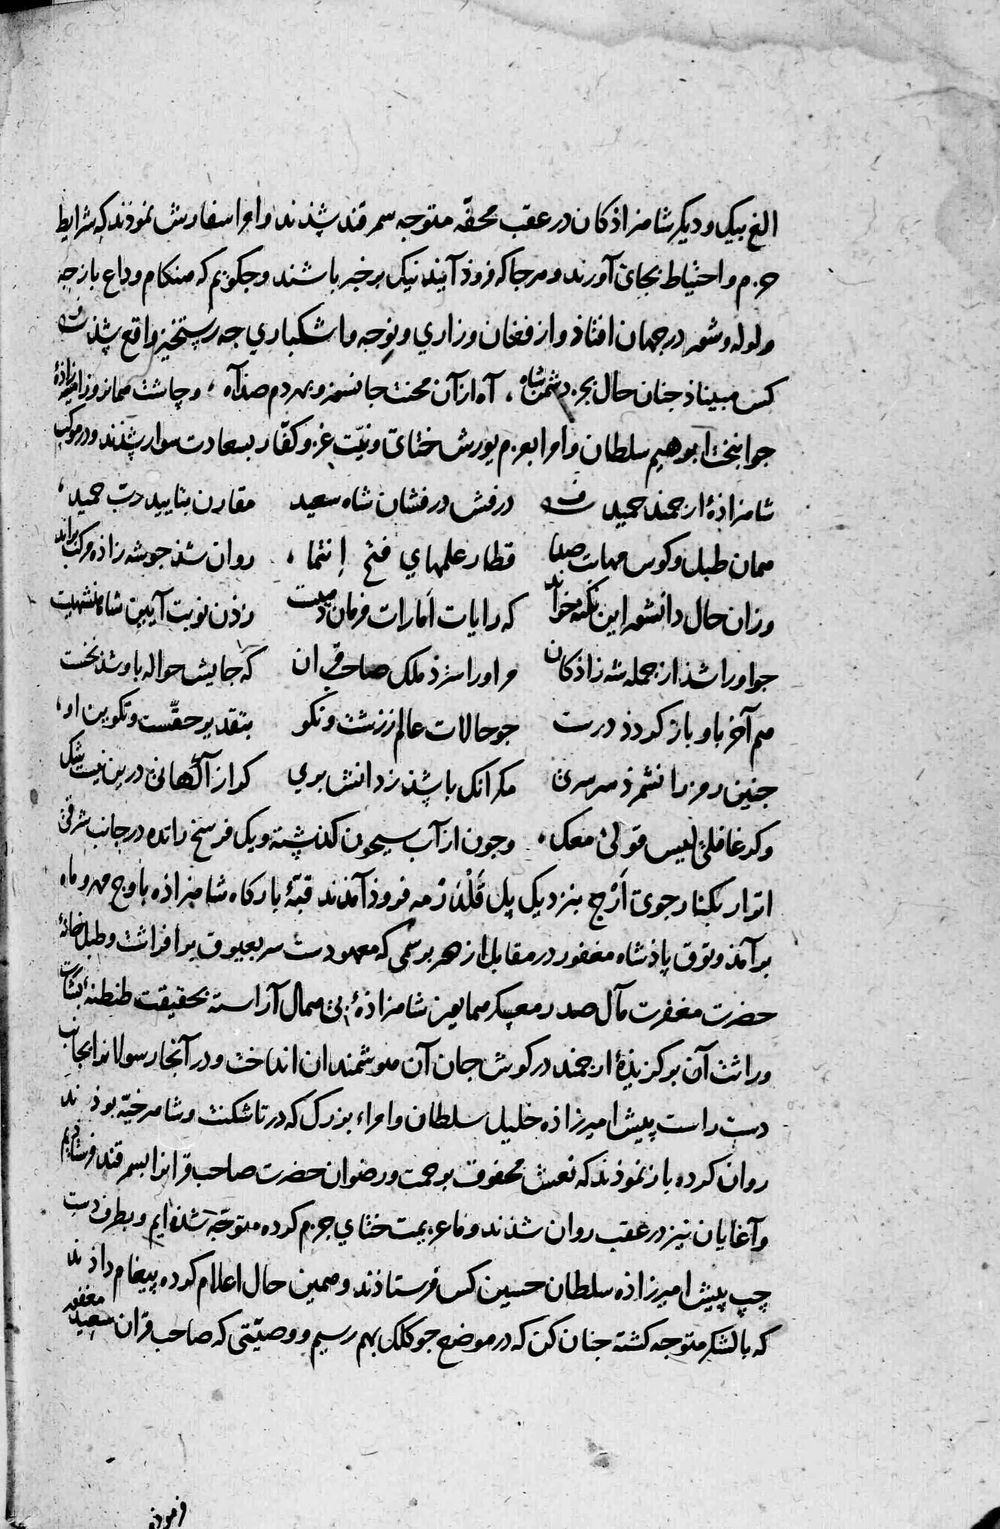 الغ بیک و دیکر شاهزاذکان در عقب محفّه متوجه سمرقند شذند و امرا سفارش نموذند که شرایط
حزم و احتیاط بجای آورند و هرجا که فروذ آیند نیک برخبر باشند و جکویم که هنکام وداع باز جه
ولوله و شور در جهان افتاذ و از فغان و زاری و نوحه و اشکباری جه رستخیز واقع شذ
کس مبیناذ جنان حال بجز دشمن شاه ، آه از آن محنت جانسوز و بهر دم صذ آه ، و چاشت همان روز امیرزاذهٔ
جوانبخت ابرهیم سلطان و امرا بعزم یورش ختای و نیّت غزو کفّار بسعادت سوار شذند و در موکب
شاهزاذهٔ ارجمند حمید درفش درفشان شاه سعید مقارن بتایید ربّ حمید ،
همان طبل و کوس مهابت صدا قطار علمهای فتح انتما ، روان شذ جو شه زاذه مرکب براند
وزان حال دانشور این نکته خواند که رایات امارات فرمان دهیست زذن نوبت آیین شاهنشهیست
جو او را شذ از جمله شه زاذکان مر او را سزذ ملک صاحب قران که جایش حواله باو شذ نخست
هم آخر باو باز کردذ درست جو حالات عالم ز زشت و نکو بتقدیر حقّست و تکوین او ،
جنین رمز را نشمرذ سرسری مکر انک باشذ ز دانش بری کو از آکهانی درین نیست شک
وکر غافلی لیس قولی معک ، وجون از آب سیحون کذشته و یک فرسخ رانده در جانب شرقی
اترار بکنار جوی اَرْج بنزدیک پل قُلْدُرْمه فروذ آمذند قبّهٔ بارکاه شاهزاذه باوج مهر و ماه
برآمذ و توق پاذشاه مغفور در مقابل از هر برسمی که معهودست سر بعیوق برافراشت و طبل خانهٔ
حضرت مغفرت مآل صدر معسکر همایون شاهزاذهٔ بی همال آراسته بحقیقت طنطنهٔ بشارت
وراثت آن برکزیذهٔ ارجمند در کوش جان آن هوشمندان انداخت و در آنجا رسولان را بجانب
دست راست پیش امیرزاذه خلیل سلطان و امراء بزرک که در تاشکنت و شاهرخیه بوذند
روان کرده باز نموذند که نعش محفوف برحمت و رضوان حضرت صاحب قرانرا بسمرقند فرستاذیم
و آغایان نیز در عقب روان شذند و ما عزیمت ختای جزم کرده متوجّه شذه‌ایم و بطرف دست
چپ پیش امیرزاذه سلطان حسین کس فرستاذند و همین حال اعلام کرده پیغام داذند
که با لشکر متوجه کشته جنان کن که در موضع جوکلک بهم رسیم و وصیّتی که صاحب قران سعید مغفور
فرموذ